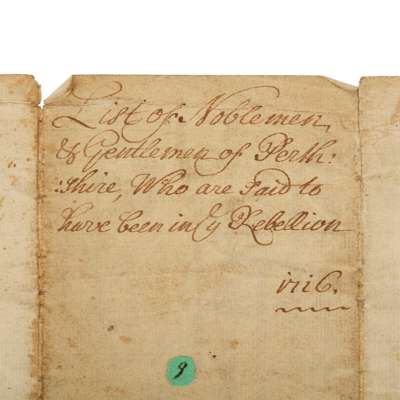 List of Noblemen,
& Gentlemen of Perth:
:shire, Who are Said to
have been in ye Rebellion
1716.
9